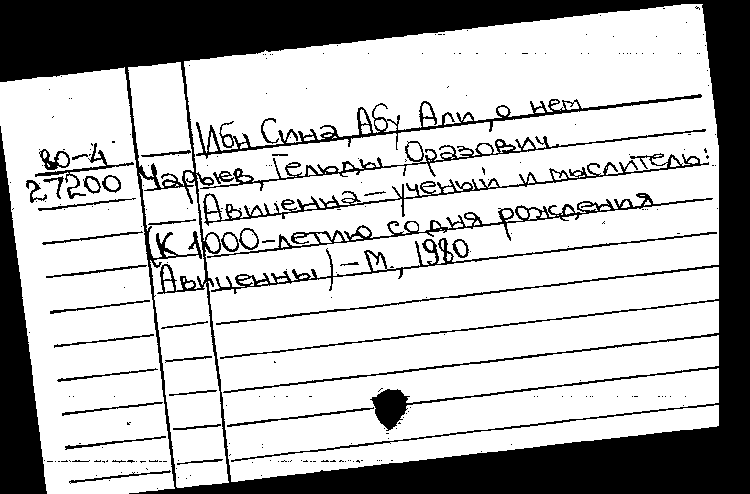 Ибн Сина, Абу Али, о нем
80-4
27200
Чарыев, Гельды Оразович.
Авиценна - ученый и мыслитель:
(К 1000-летию со дня рождения
Авиценны) - М., 1980